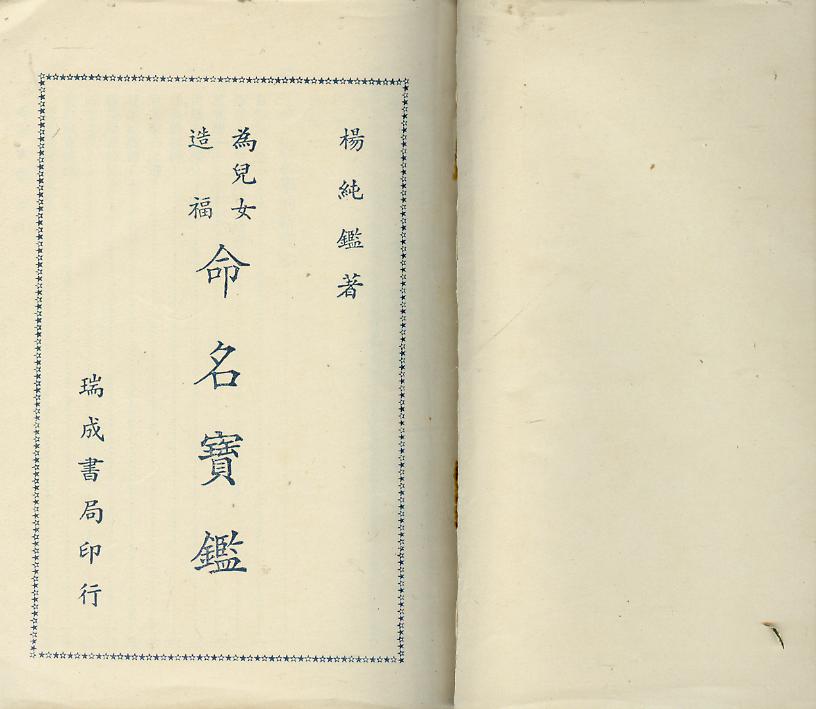 楊純鑑著
為兒女
造福
命名寶鑑
瑞成書局印行